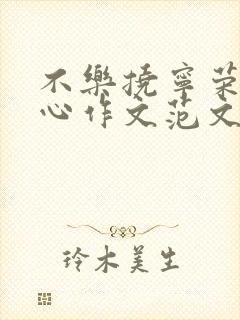 不樂撓寧荣
心作文范文
玲木美生